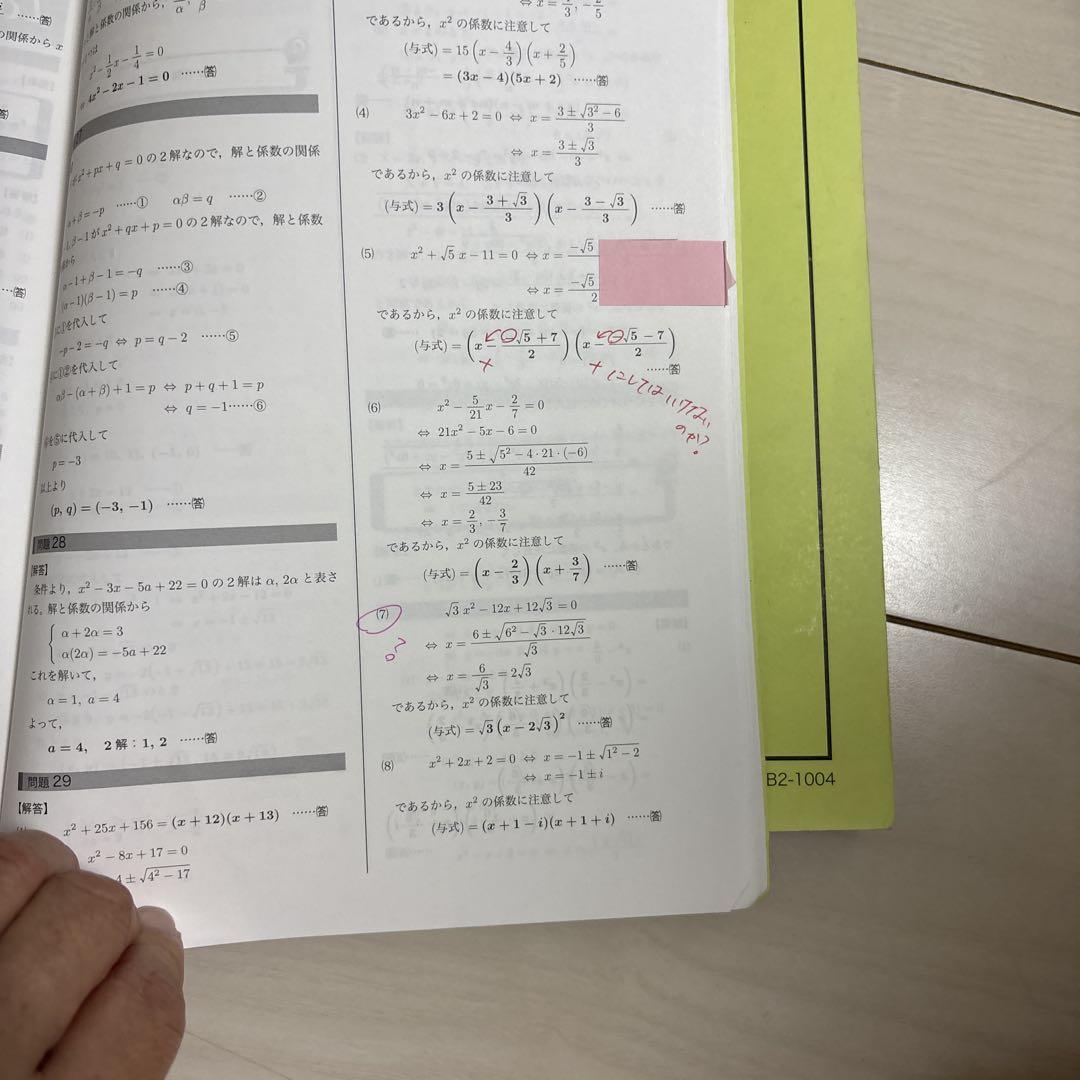 ……㊥
係数の関係から x
解と係数の関係から,
x² - 1/2 x - 1/4 = 0
4x² - 2x - 1 = 0 ……㊥
x² + px + q = 0 の2解なので，解と係数の関係
α + β = -p ……① αβ = q ……②
β - 1 が x² + qx + p = 0 の2解なので，解と係数
α - 1 + β - 1 = -q ……③
(α - 1)(β - 1) = p ……④
を代入して
-p - 2 = -q ⇔ p = q - 2 ……⑤
①②を代入して
αβ - (α + β) + 1 = p ⇔ p + q + 1 = p
⇔ q = -1 ……⑥
を⑤に代入して
p = -3
以上より
(p, q) = (-3, -1) ……㊥
問題28
【解答】
条件より，x² - 3x - 5a + 22 = 0 の2解は α, 2α と表さ
れる。解と係数の関係から
α + 2α = 3
α(2α) = -5a + 22
これを解いて，
α = 1, a = 4
よって，
a = 4, 2解：1, 2 ……㊥
問題29
【解答】
x² + 25x + 156 = (x + 12)(x + 13) ……㊥
x² - 8x + 17 = 0
4 ± √(4² - 17)
であるから，x² の係数に注意して
(与式) = 15(x - 4/3)(x + 2/5)
= (3x - 4)(5x + 2) ……㊥
(4) 3x² - 6x + 2 = 0 ⇔ x = (3 ± √(3² - 6))/3
⇔ x = (3 ± √3)/3
であるから，x² の係数に注意して
(与式) = 3(x - (3 + √3)/3)(x - (3 - √3)/3) ……㊥
(5) x² + √5 x - 11 = 0 ⇔ x = -√5
⇔ x = -√5 / 2
であるから，x² の係数に注意して
(与式) = (x - (-√5 + 7)/2)(x - (-√5 - 7)/2)
……㊥
+ + にしてはいけない
のか?
(6) x² - 5/21 x - 2/7 = 0
⇔ 21x² - 5x - 6 = 0
⇔ x = (5 ± √(5² - 4・21・(-6)))/42
⇔ x = (5 ± 23)/42
⇔ x = 2/3, -3/7
であるから，x² の係数に注意して
(与式) = (x - 2/3)(x + 3/7) ……㊥
(7) √3 x² - 12x + 12√3 = 0
?
⇔ x = (6 ± √(6² - √3・12√3))/√3
⇔ x = 6/√3 = 2√3
であるから，x² の係数に注意して
(与式) = √3(x - 2√3)² ……㊥
(8) x² + 2x + 2 = 0 ⇔ x = -1 ± √(1² - 2)
⇔ x = -1 ± i
であるから，x² の係数に注意して
(与式) = (x + 1 - i)(x + 1 + i) ……㊥
B2-1004